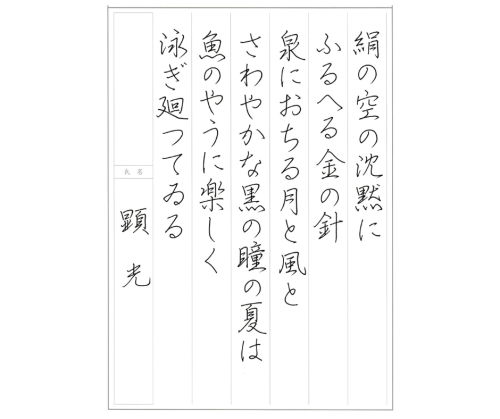 絹の空の沈黙に
ふるへる金の針
泉におちる月と風と
さわやかな黒の瞳の夏は
魚のやうに楽しく
泳ぎ廻つてゐる
氏名
顕光